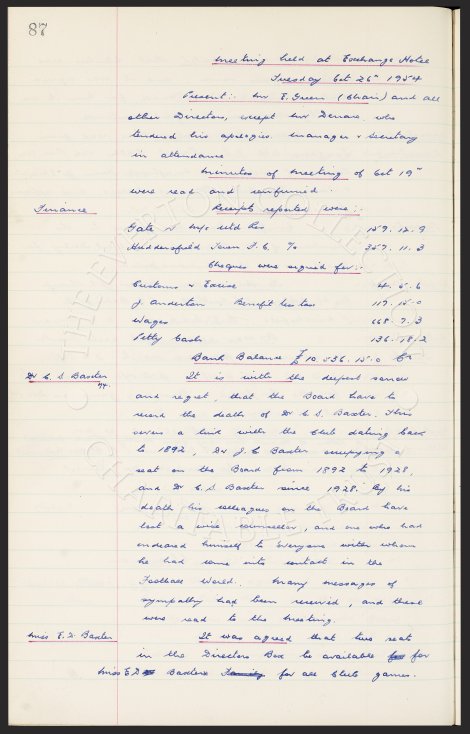 87
Meeting held at Exchange Hotel
Tuesday Oct 26th 1954
Present:- Mr E. Green (Chair) and all
other Directors, except Mr Denaro who
tendered his apologies. Manager & Secretary
in attendance
Minutes of Meeting of Oct 19th
were read and confirmed.
Finance
Receipts reported were:-
Gate v M/c Utd Res 159. 12. 9
Huddersfield Town F.C. % 357. 11. 3
Cheques were signed for:-
Customs & Excise 4. 5. 6
J. Anderton Benefit less tax 117. 15. 0
Wages 668. 7. 3
Petty Cash 136. 18. 2
Bank Balance £10,536. 15. 0 Cr
Dr C. S. Baxter
It is with the deepest sorrow
and regret, that the Board have to
record the death of Dr C. S. Baxter. This
severs a link with the Club dating back
to 1892, Dr J. C. Baxter occupying a
seat on the Board from 1892 to 1928,
and Dr C. S. Baxter since 1928. By his
death his colleagues on the Board have
lost a wise counsellor, and one who had
endeared himself to everyone with whom
he had come into contact in the
Football World. Many messages of
sympathy had been received, and these
were read to the Meeting.
Miss E. D. Baxter
It was agreed that two seats
in the Directors Box be available for for
Miss E D Baxters Family for all Club games.
THE EVERTON COLLECTION
CHARITABLE TRUST